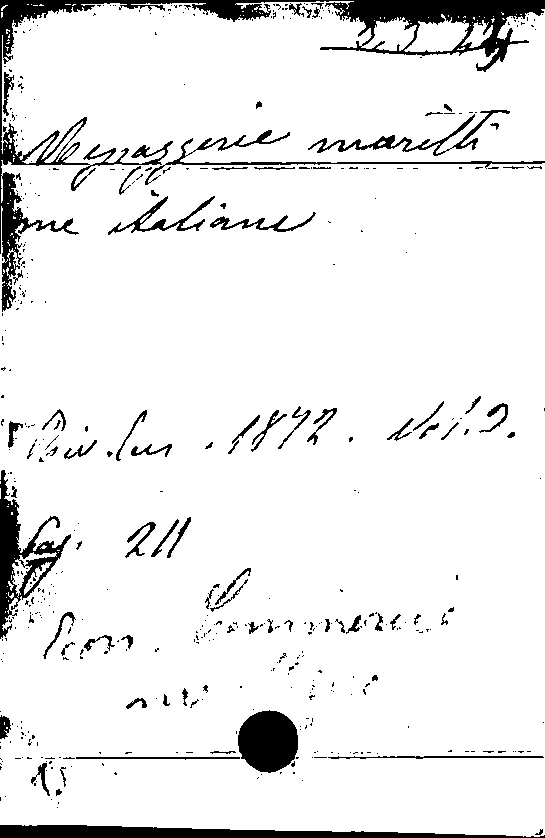 3.3.
Messaggerie maritti
me italiane
Riv. Eur. 1872. Vol. 2.
Pag. 211
Econ. Commercio